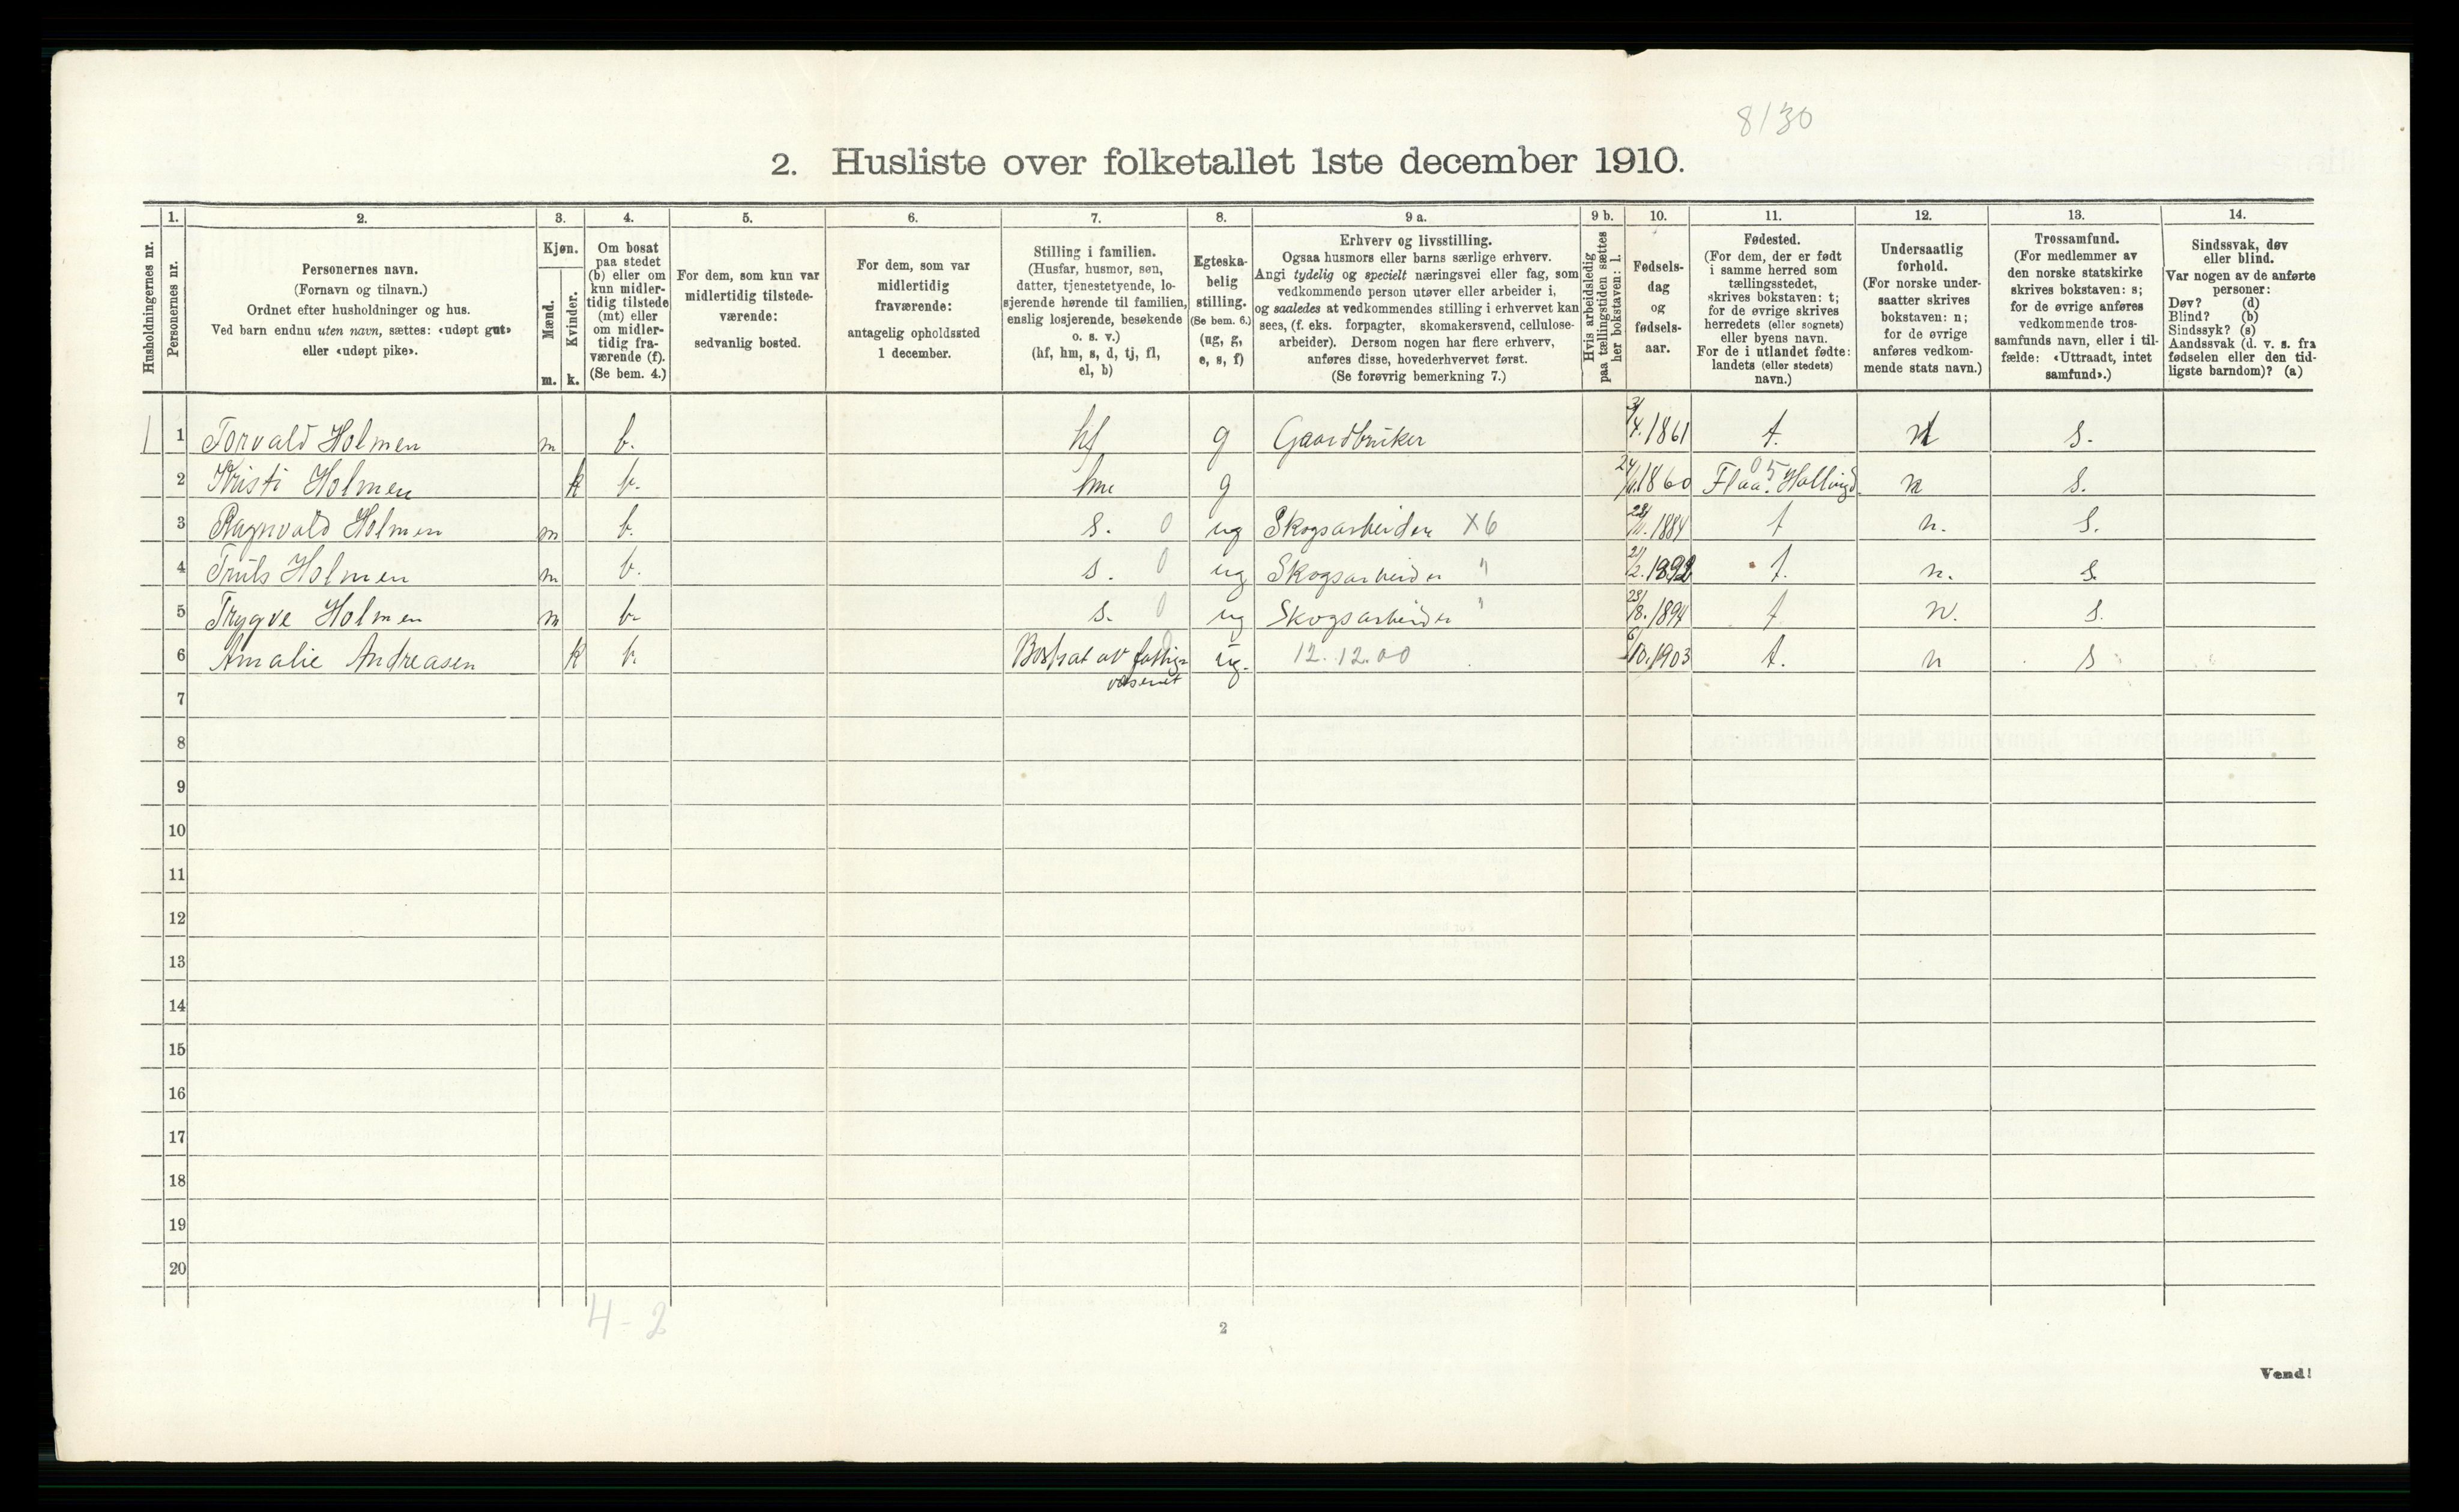 8/30
2. Husliste over folketallet 1ste december 1910.
Husholdningernes nr.
1. Personernes nr.
2. Personernes navn. (Fornavn og tilnavn.) Ordnet efter husholdninger og hus. Ved barn endnu uten navn, sættes: «udøpt gut» eller «udøpt pike».
3. Kjøn. Mænd. m. Kvinder. k.
4. Om bosat paa stedet (b) eller om kun midler-tidig tilstede (mt) eller om midler-tidig fra-værende (f). (Se bem. 4.)
5. For dem, som kun var midlertidig tilstede-værende: sedvanlig bosted.
6. For dem, som var midlertidig fraværende: antagelig opholdssted 1 december.
7. Stilling i familien. (Husfar, husmor, søn, datter, tjenestetyende, lo-sjerende hørende til familien, enslig losjerende, besøkende o. s. v.) (hf, hm, s, d, tj, fl, el, b)
8. Egteska-belig stilling. (Se bem. 6.) (ug, g, e, s, f)
9 a. Erhverv og livsstilling. Ogsaa husmors eller barns særlige erhverv. Angi tydelig og specielt næringsvei eller fag, som vedkommende person utøver eller arbeider i, og saaledes at vedkommendes stilling i erhvervet kan sees, (f. eks. forpagter, skomakersvend, cellulose-arbeider). Dersom nogen har flere erhverv, anføres disse, hovederhvervet først. (Se forøvrig bemerkning 7.)
9 b. Hvis arbeidsledig paa tællingstiden sættes her bokstaven: l.
10. Fødsels-dag og fødsels-aar.
11. Fødested. (For dem, der er født i samme herred som tællingsstedet, skrives bokstaven: t; for de øvrige skrives herredets (eller sognets) eller byens navn. For de i utlandet fødte: landets (eller stedets) navn.)
12. Undersaatlig forhold. (For norske under-saatter skrives bokstaven: n; for de øvrige anføres vedkom-mende stats navn.)
13. Trossamfund. (For medlemmer av den norske statskirke skrives bokstaven: s; for de øvrige anføres vedkommende tros-samfunds navn, eller i til-fælde: «Uttraadt, intet samfund».)
14. Sindssvak, døv eller blind. Var nogen av de anførte personer: Døv? (d) Blind? (b) Sindssyk? (s) Aandssvak (d. v. s. fra fødselen eller den tid-ligste barndom)? (a)
1 1 Torvald Holmen m b. hf g Gaardbruker /4.1861 t. n s.
2 Kristi Holmen k b. hm g 1860 Flaa. 05 Hallingd n s.
3 Ragnvald Holmen m b. s. 0 ug Skogsarbeider X6 /11.1884 t n. s.
4 Truls Holmen m b. s. 0 ug Skogsarbeider " 21/2.1892 t. n. s.
5 Trygve Holmen m b. s. 0 ug Skogsarbeider " 23/8.1894 t n. s.
6 Amalie Andreasen k b. Bortsat av fattig= ug. 12.12.00 6/10.1903 t. n s
væsenet
7
8
9
10
11
12
13
14
15
16
17
18
19
20
4 - 2
2
Vend!